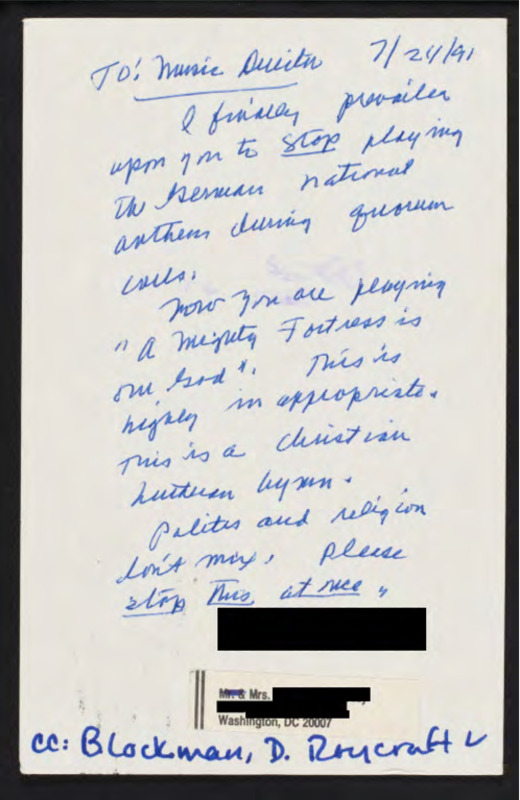 TO: Music Director 7/24/91
I finally prevailed
upon you to stop playing
the German national
anthem during quorum
calls.
Now you are playing
"A Mighty Fortress is
our God". This is
highly inappropriate.
This is a Christian
Lutheran hymn.
Politics and religion
don't mix. Please
stop this at once.
Mr. & Mrs.
Washington, DC 20007
cc: Blockman, D. Roycraft